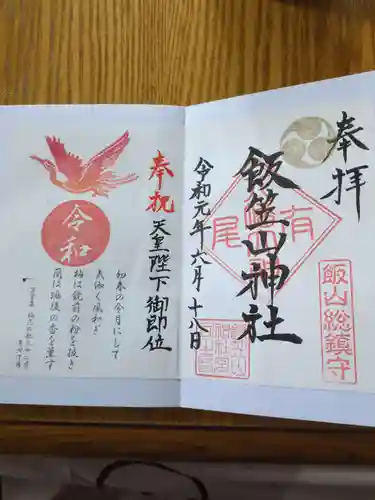 奉拝
飯山総鎮守
飯笠山神社
有尾
令和元年六月十八日
奉祝
天皇陛下御即位
令和
初春の令月にして
気淑く風和ぎ
梅は鏡前の粉を披き
蘭は珮後の香を薫す